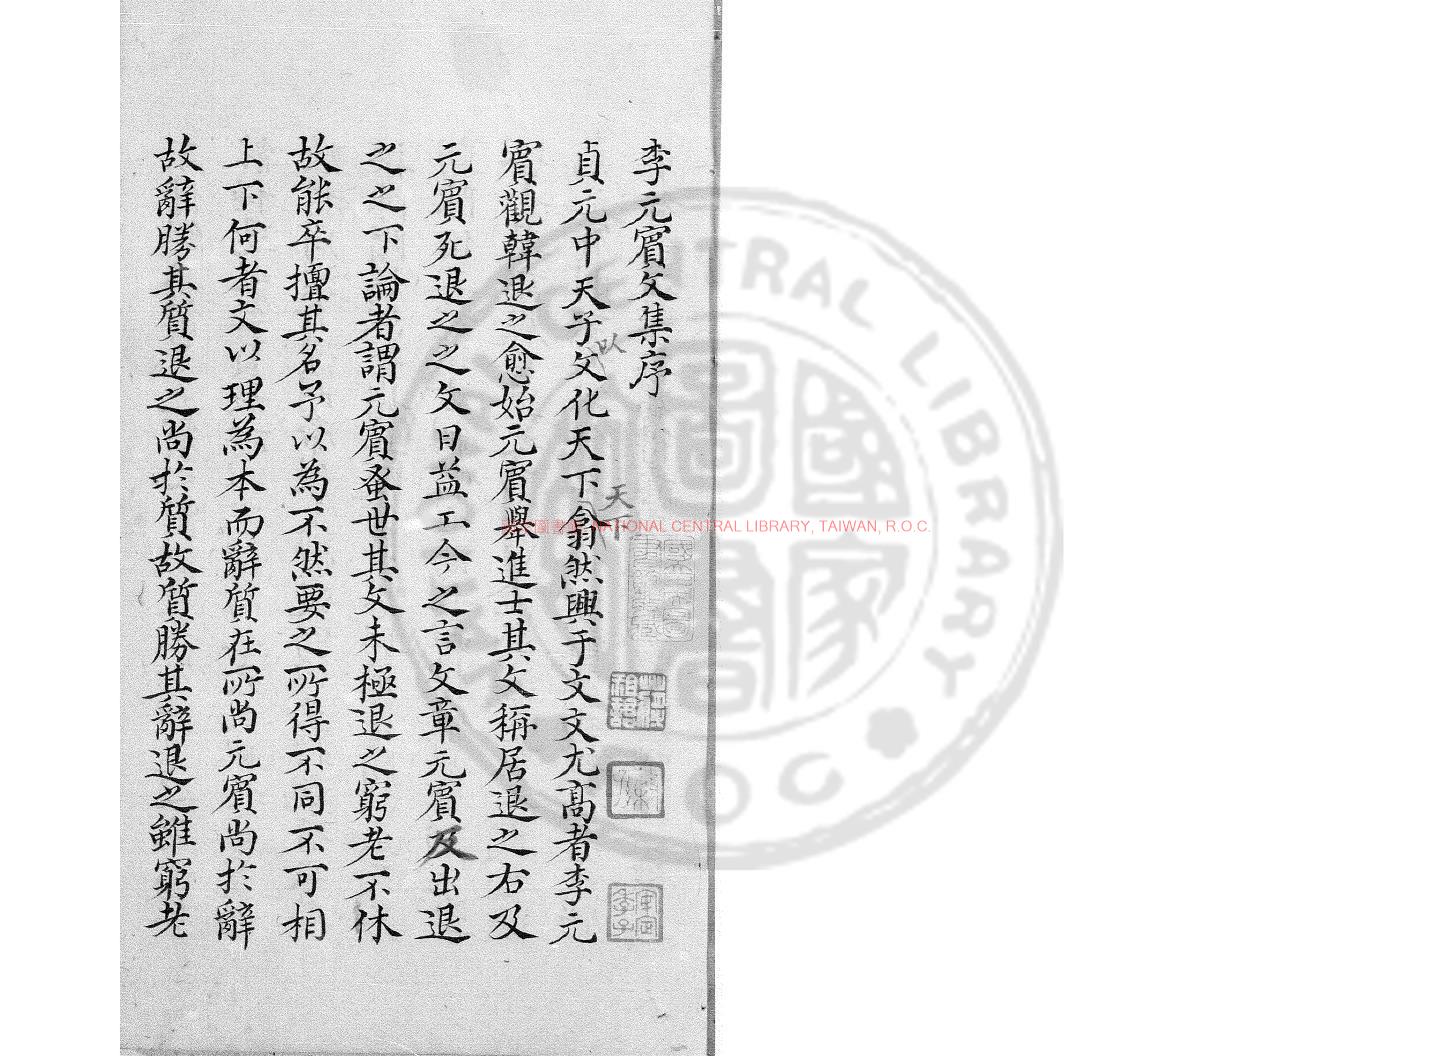 李元賔文集序
貞元中天子文化天下翕然興于文文尤髙者李元
以
天下
賔觀韓退之愈始元賔舉進士其文稱居退之右及
元賔死退之之文日益工今之言文章元賔及出退
之之下論者謂元賔蚤世其文未極退之窮老不休
故能卒擅其名予以為不然要之所得不同不可相
上下何者文以理為本而辭質在所尚元賔尚於辭
故辭勝其質退之尚於質故質勝其辭退之雖窮老
國家圖書館, NATIONAL CENTRAL LIBRARY, TAIWAN, R.O.C.
CENTRAL LIBRARY
ROC
國家圖書